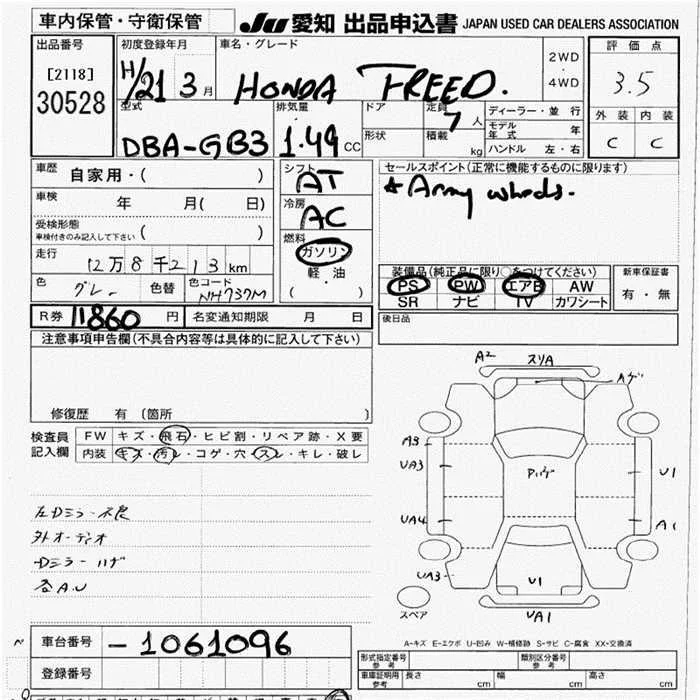 車内保管・守衛保管
JU 愛知 出品申込書 JAPAN USED CAR DEALERS ASSOCIATION
出品番号
[2118]
30528
初度登録年月
H/21 3 月
車名・グレード
HONDA FREED.
2WD
・
4WD
評価点
3.5
外装 内装
C C
型式
DBA-GB3
排気量
1.49 CC
ドア
形状
定員
7 人
積載 kg
ディーラー・並行
モデル年式 年
ハンドル 左・右
車歴 自家用・( )
車検 年 月( 日)
受検形態
車検付きのみ記入して下さい ( )
走行 12万8千213km
色 グレー 色替 色コード NH737M
シフト AT
冷房 AC
燃料
ガソリン
軽・油
( )
セールスポイント(正常に機能するものに限ります)
装備品(純正品に限り○をつけてください)
PS PW エアB AW
SR ナビ TV カワシート
新車保証書
有・無
R券 11860 円 名変通知期限 月 日
後日品
注意事項申告欄(不具合内容等は具体的に記入して下さい)
修復歴 有(箇所 )
検査員記入欄
FW キズ・飛石・ヒビ割・リペア跡・X要
内装 キズ・汚レ・コゲ・穴・スレ・キレ・破レ
左Dミラー不良
外オーディオ
Dミラーハゲ
各A.U
A2 スリA
Aゲ
A3
UA3
Pハゲ
U1
UA4
A1
UA3
U1
スペア
UA1
A-キズ E-エクボ U-凹み W-補修跡 S-サビ C-腐食 XX-交換済
車台番号 -1061096
登録番号
形式指定番号 参考
類別区分番号 参考
車庫証明用 参考 長さ cm 幅 cm 高さ cm